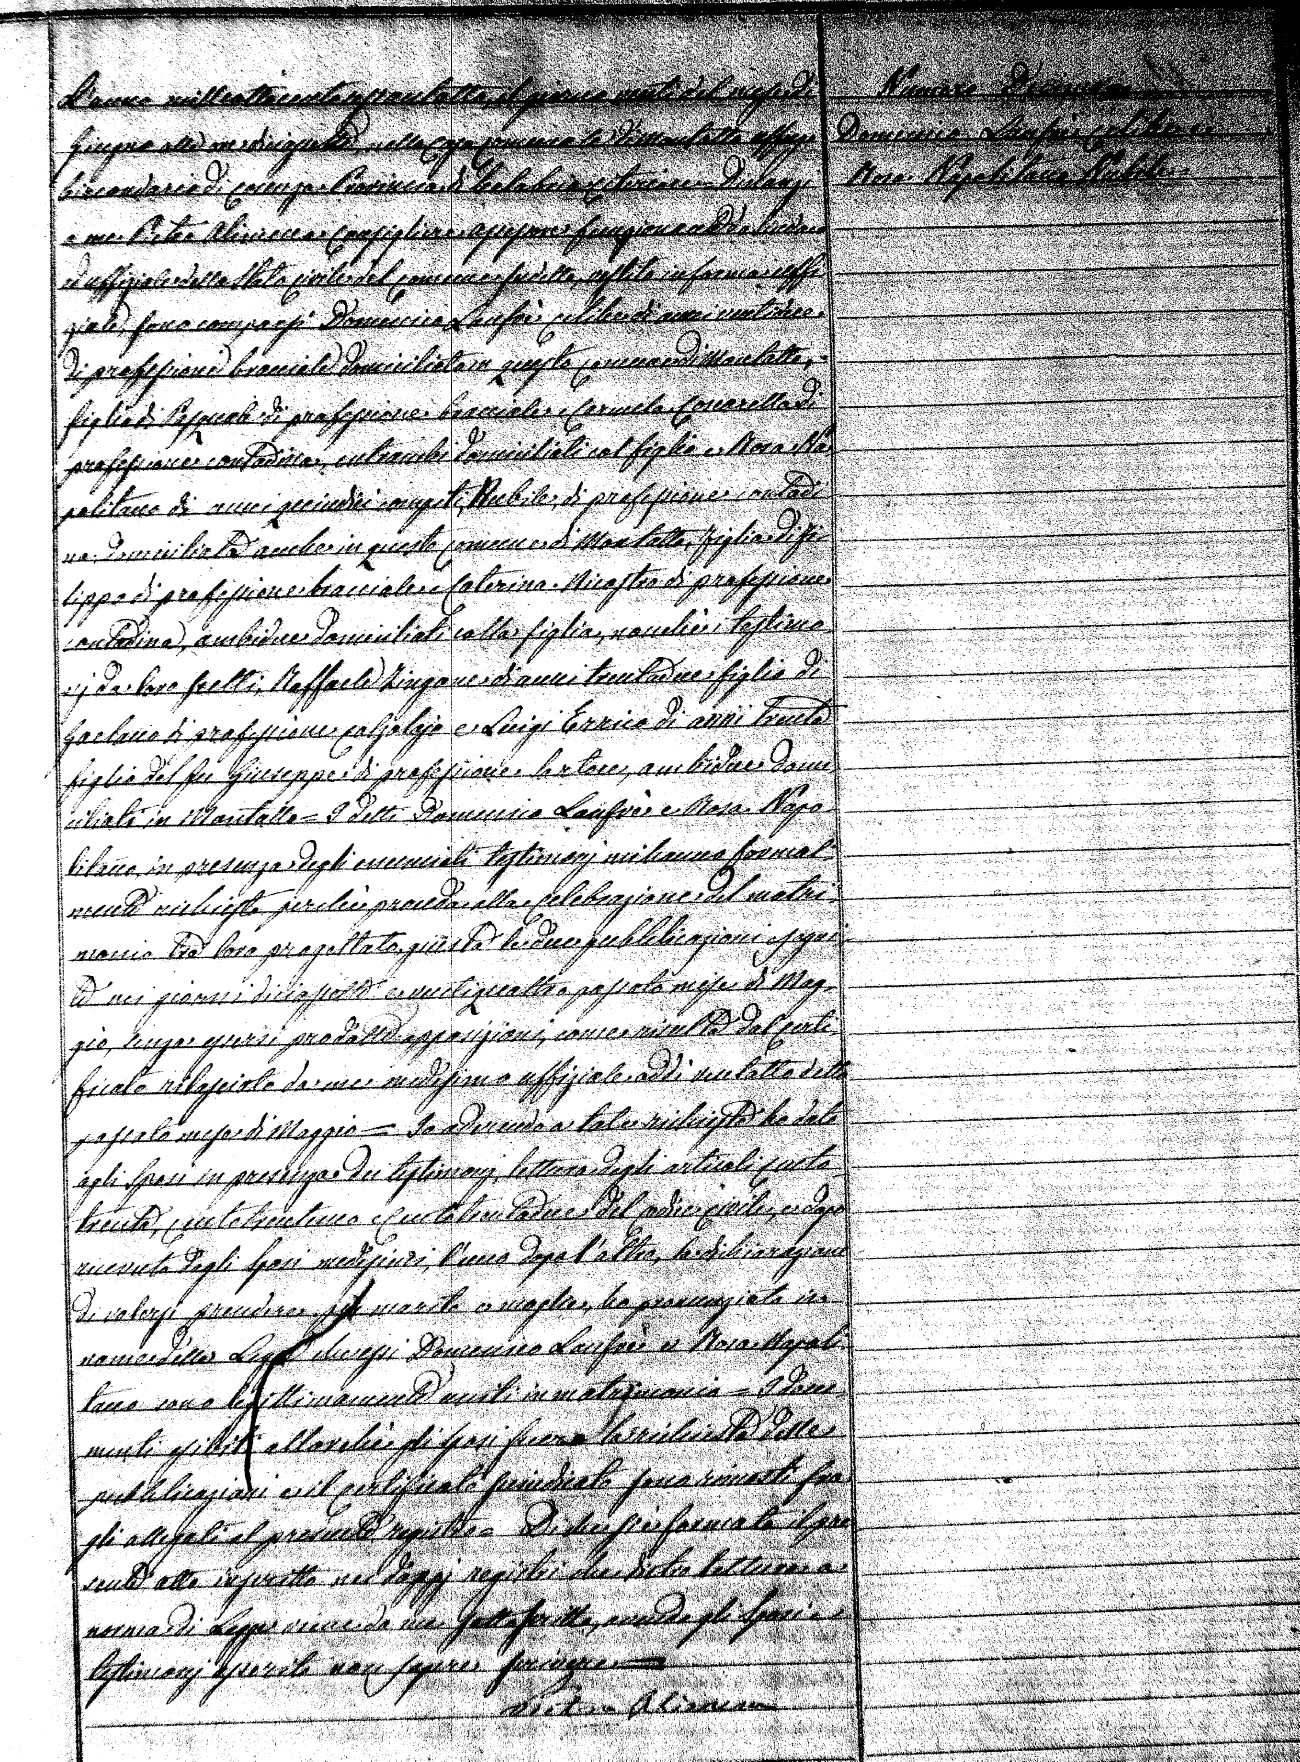 L'anno milleottocentosessantotto, il giorno venti del mese di
Giugno alle ore dieci, nella Casa comunale di Montalto Uffugo
Circondario di Cosenza Provincia di Calabria Citeriore = Dinanzi
a me Pietro Alimena Consigliere Assessore funzionante da Sindaco
ed uffiziale dello Stato Civile del comune sudetto, vestito in forma uffi
ziale, sono comparsi Domenico Lanfrè celibe di anni ventidue
di professione bracciale domiciliato in questo comune di Montalto,
figlio di Pasquale di professione bracciale e Carmela di
professione contadina, entrambi domiciliati col figlio e Rosa Na
politano di anni quindici compiti, Nubile, di professione contadi
na domiciliata anche in questo comune di Montalto, figlia di Fi
lippo di professione bracciale e Caterina Nicastro di professione
contadina, ambidue domiciliati colla figlia, nonché i testimo
nj da loro scelti, Raffaele Zingone di anni trentadue figlio di
Gaetano di professione calzolajo e Luigi Errico di anni trenta
figlio del fu Giuseppe di professione sartore, ambidue domi
ciliati in Montalto = I detti Domenico Lanfrè e Rosa Napo
litano, in presenza degli enunciati testimonj mi hanno formal
mente richiesto perché proceda alla celebrazione del matri
monio tra loro progettato, giusta le due pubblicazioni esegui
te nei giorni diciassette e ventiquattro passato mese di Mag
gio, senza essersi prodotte opposizioni, come risulta dal certi
ficato rilasciato da me medesimo uffiziale addì ventotto detto
passato mese di Maggio = Io aderendo a tale richiesta ho dato
agli Sposi in presenza dei testimonj, lettura degli articoli cento
trenta, centotrentuno e centotrentadue del codice civile, e dopo
ricevuta dagli Sposi medesimi, l'uno dopo l'altro, la dichiarazione
di volersi prendere per marito e moglie, ho pronunziato in
nome della Legge che essi Domenico Lanfrè e Rosa Napoli
tano sono legittimamente uniti in matrimonio = I docu
menti esibiti allorché gli Sposi fecero la richiesta delle
pubblicazioni e il certificato succedicato sono rimasti fra
gli allegati al presente registro = Di che si è formato il pre
sente atto inscritto nei doppj registri che dietro lettura a
norma di Legge viene da me sottoscritto, avendo gli Sposi e
testimonj asserito non sapere scrivere =
Pietro Alimena
Numero Decimo
Domenico Lanfrè celibe e
Rosa Napolitano Nubile